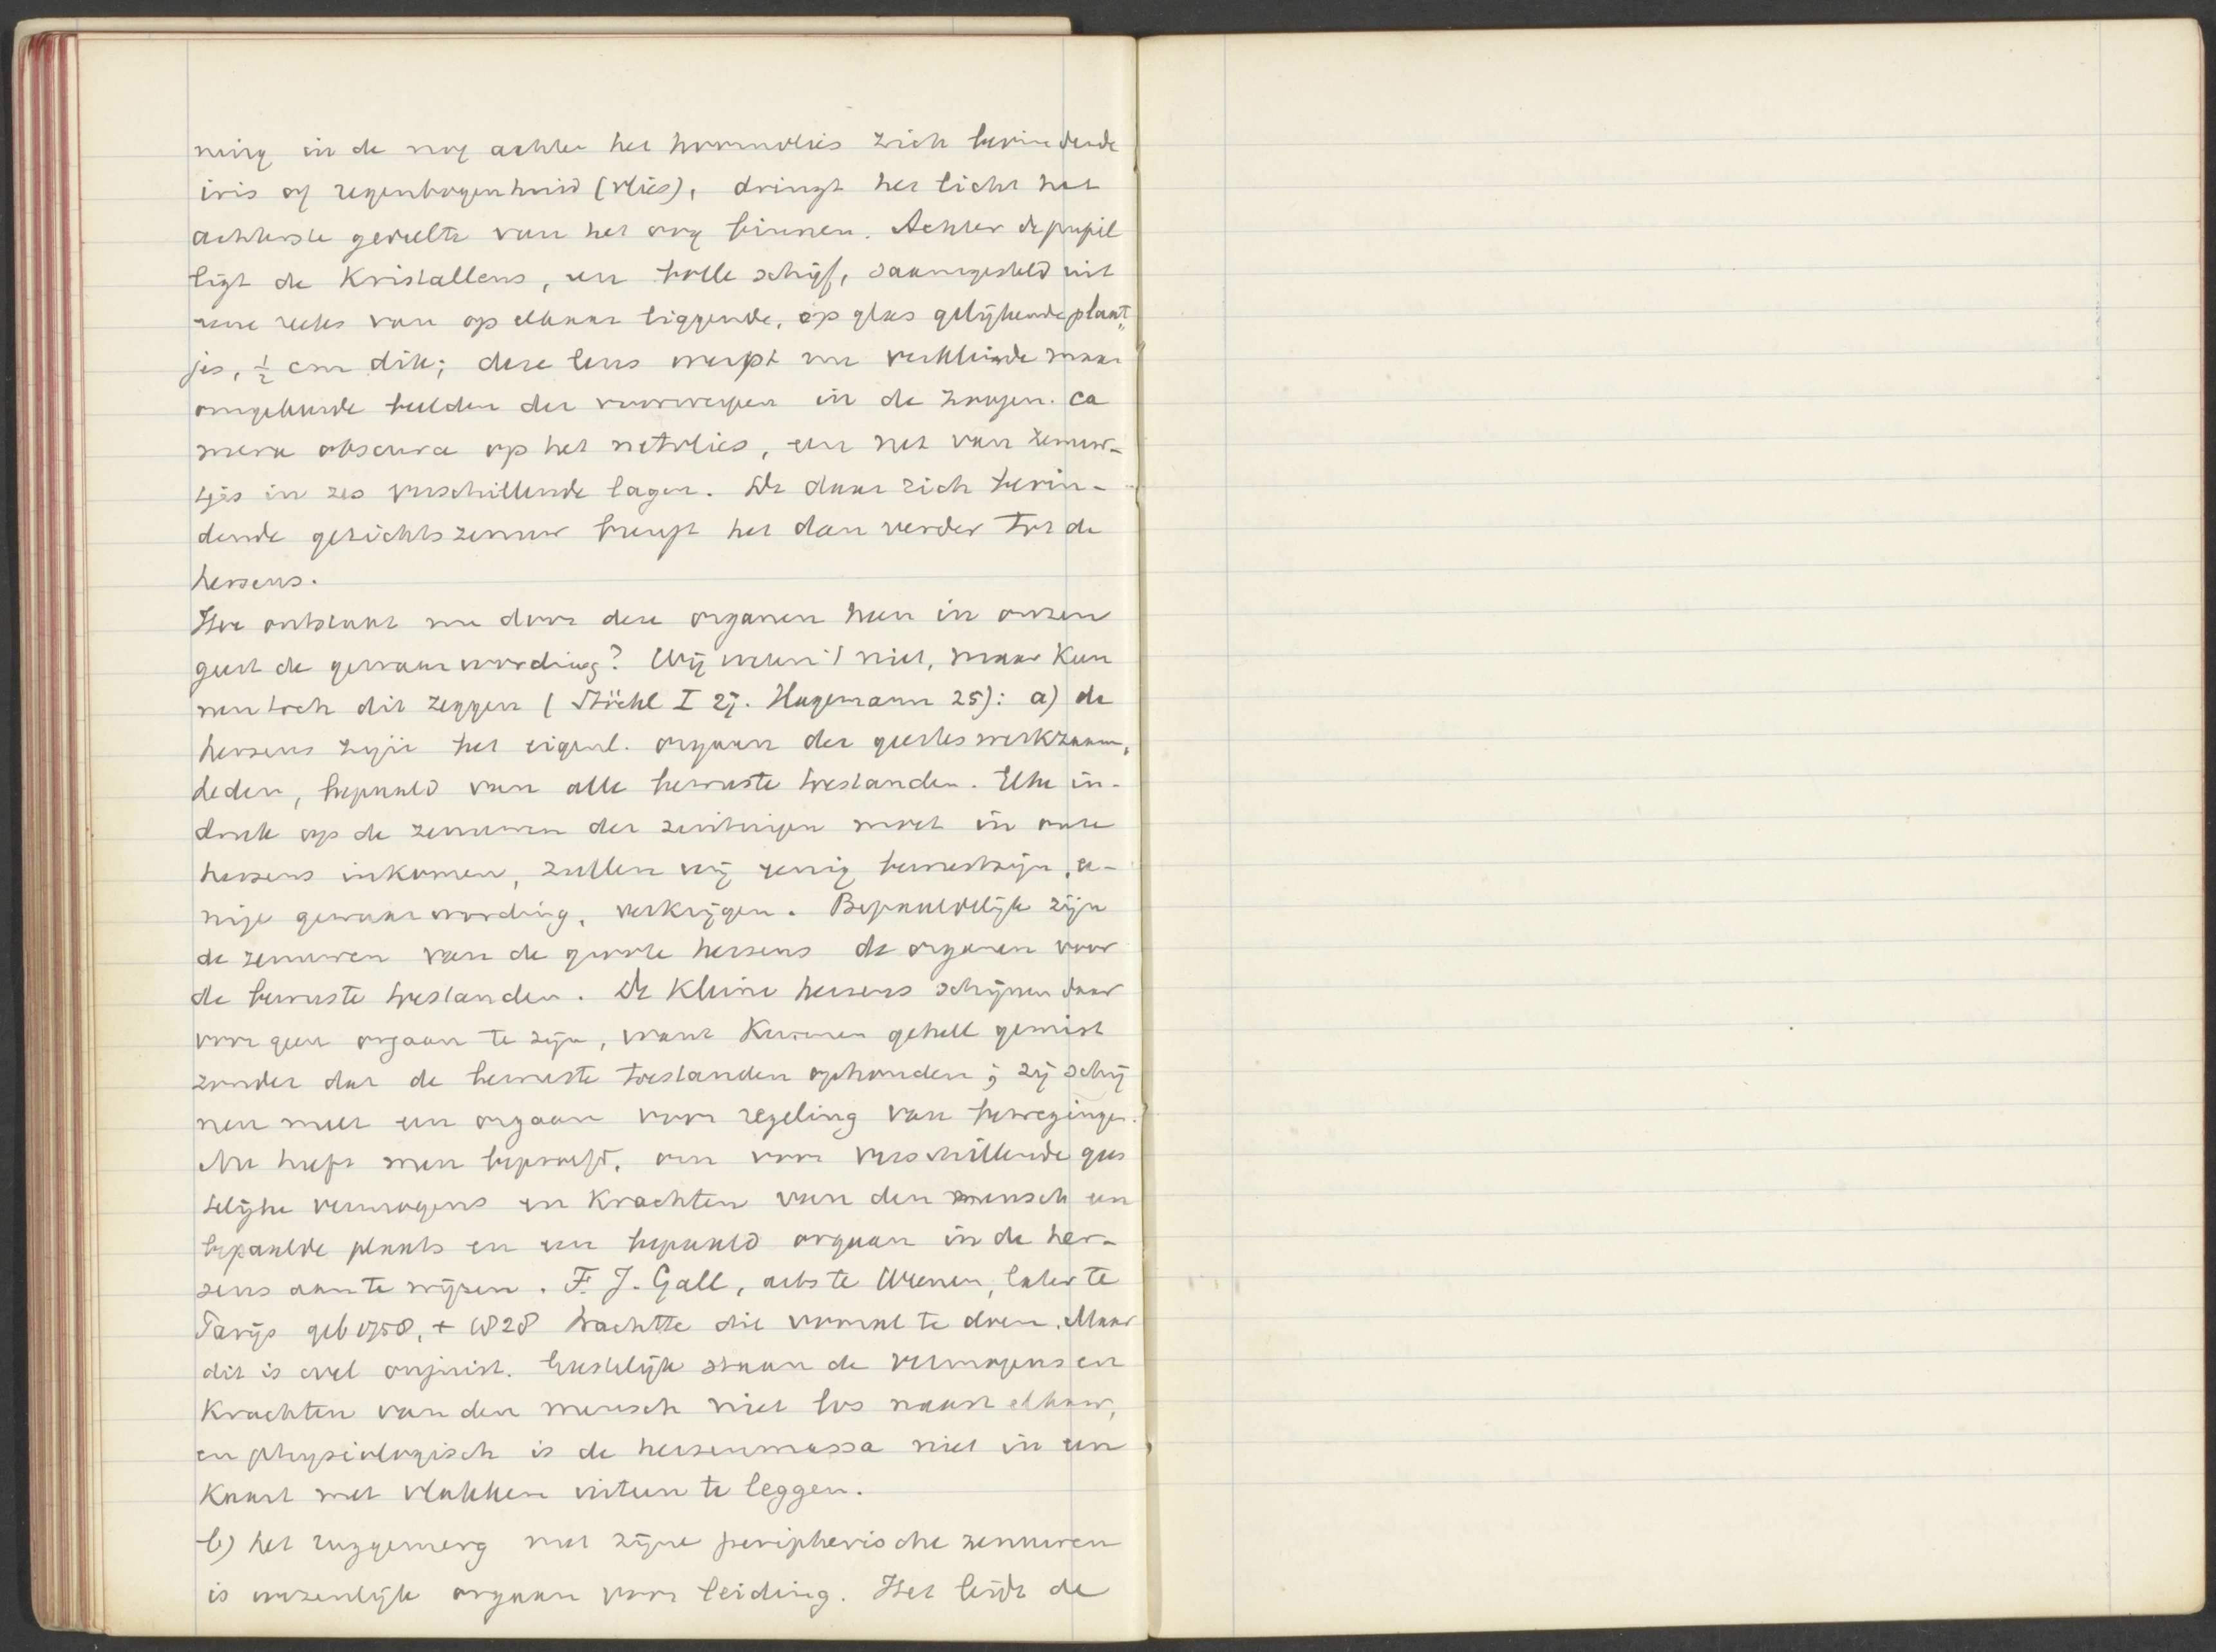 ning in de nog achter het hoornvlies zich bevindende
iris of regenbogenhuid (vlies), dringt het licht het
achterste gedeelte van het oog binnen. Achter de pupil
ligt de Kristallens, een bolle schijf, saamgesteld uit
eene reeks van op elkaar liggende, op glas gelijkende plaat„
jes, ½ cm dik; deze lens werpt nu verkleinde maar
omgekeerde beelden der voorwerpen in de zoogen. ca
mera obscura op het netvlies, een net van zenuw-
tjes in zes verschillende lagen. De daar zich bevin-
dende gezichtszenuw brengt het dan verder tot de
hersens.
Hoe ontstaat nu door deze organen heen in onzen
geest de gewaarwording? Wij weten 't niet, maar Kun
nen toch dit zeggen (Stöckl I 27. Hagemann 25): a) de
hersens zijn het eigenl. orgaan der geesteswerkzaam,
heden, bepaald van alle bewuste toestanden. Elke in-
druk op de zenuwen der zintuigen moet in onze
hersens inkomen, zullen wij eenig bewustzijn, ee-
nige gewaarwording, verkrijgen. Bepaaldelijk zijn
de zenuwen van de groote hersens de organen voor
de bewuste toestanden. De Kleine hersens schijnen daar
voor geen orgaan te zijn, want Kunnen geheel gemist
zonder dat de bewuste toestanden ophouden; zij schij
nen meer een orgaan voor regeling van bewegingen.
Nu heeft men beproefd, om voor verschillende gees
telijke vermogens en Krachten van den mensch een
bepaalde plaats en een bepaald orgaan in de her-
sens aan te wijzen. F. J. Gall, arts te Weenen, later te
Parijs geb 1758, + 1828 trachtte dit vooral te doen. Maar
dit is evel onjuist. Geestelijk staan de vermogens en
Krachten van den mensch niet los naast elkaar,
en physiologisch is de hersenmassa niet in een
Kaart met vlakken uiteen te leggen.
b) het ruggemerg met zijne peripherische zenuwen
is wezenlijk orgaan voor leiding. Het leidt de